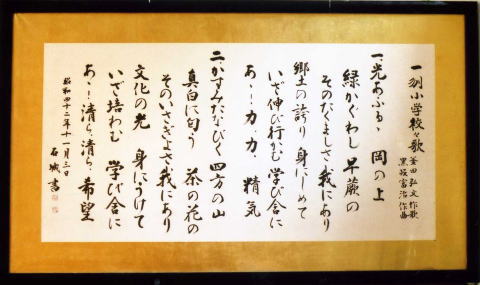 一刎小学校々歌
釜田弘文作歌
黒坂富治作曲
一、光あふるゝ 岡の上
緑かぐわし 早蕨の
そのたくましさ 我にあり
郷土の誇り 身にしめて
いざ伸び行かむ 学び舎に
あゝ！力、力、精気
二、かすみたなびく 四方の山
真白に匂う 茶の花の
そのいさぎよさ 我にあり
文化の光 身にうけて
いざ培わむ 学び舎に
あゝ！清ら、清ら、希望
昭和四十二年十一月三日
石城書